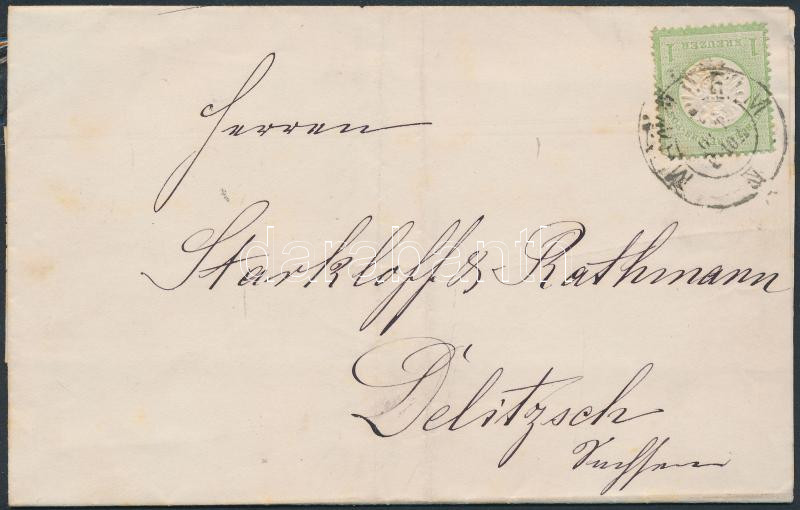 1
KREUZER
1
Herren
Starkloff & Rathmann
Delitzsch
Sachsen
darabanth